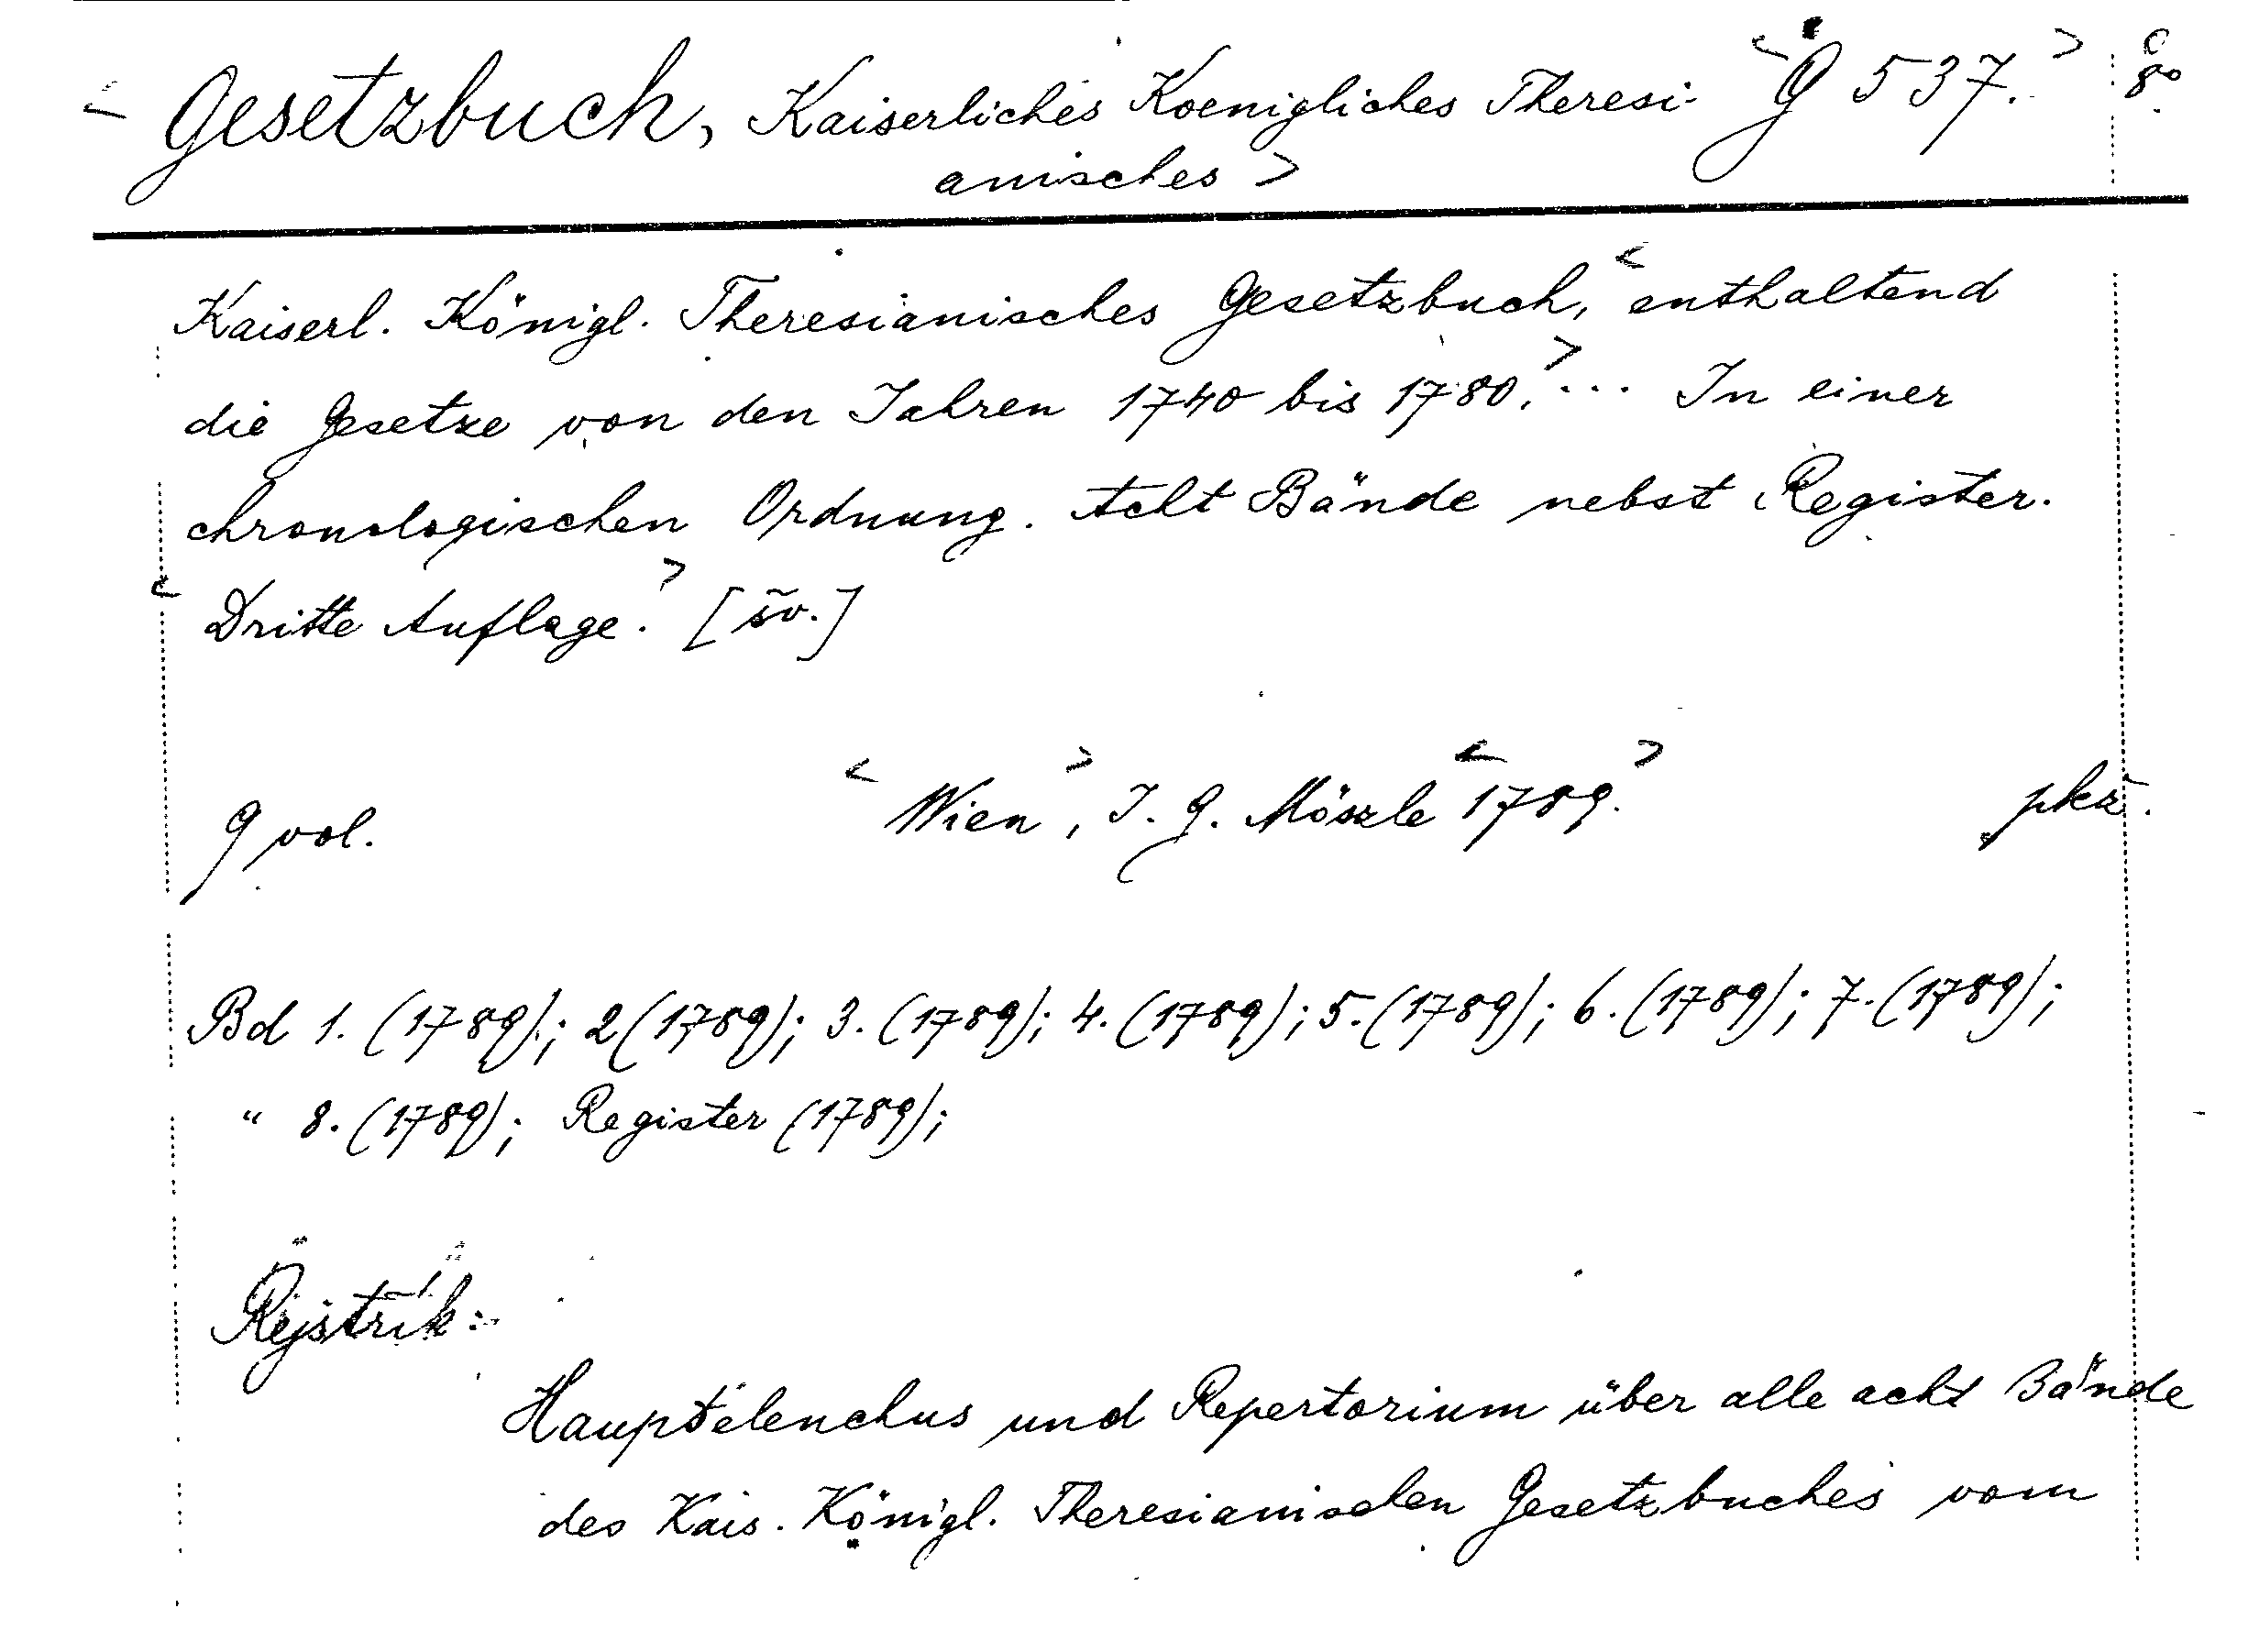 < Gesetzbuch, Kaiserliches Koenigliches Theresi- < G 537. > 8°
anisches >
Kaiserl. Königl. Theresianisches Gesetzbuch, < enthaltend
die Gesetze von den Jahren 1740 bis 1780. > ... In einer
chronologischen Ordnung. Acht Bände nebst Register.
< Dritte Auflage. > [šv.]
9 vol. < Wien >, J. G. Möszle < 1789. > pkž.
Bd 1. (1789); 2 (1789); 3. (1789); 4. (1789); 5. (1789); 6. (1789); 7. (1789);
" 8. (1789); Register (1789);
Rejstřík:
Hauptelenchus und Repertorium über alle acht Bände
des Kais. Königl. Theresianischen Gesetzbuches vom